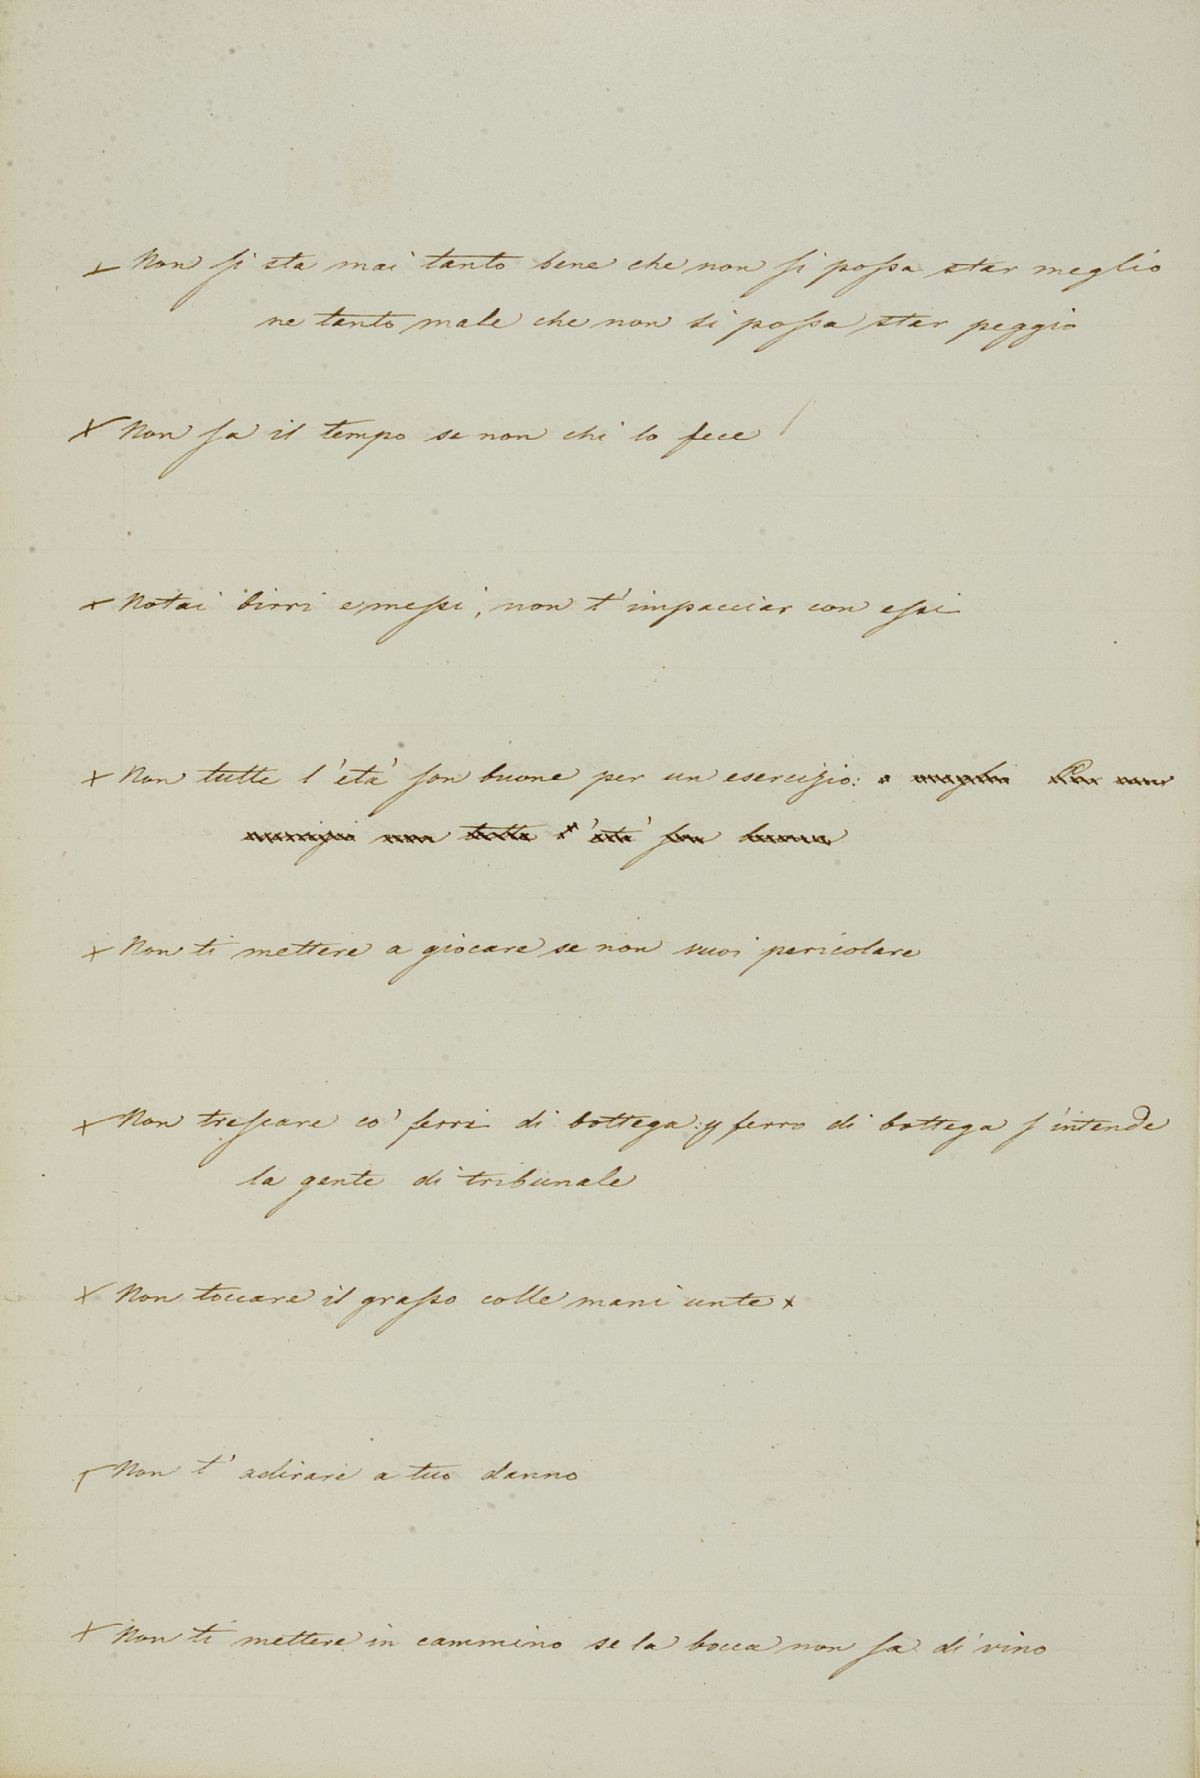 + Non si sta mai tanto bene che non si possa star meglio
ne tanto male che non si possa star peggio
+ Non sa il tempo se non chi lo fece /
+ Notai birri e messi, non t'impacciar con essi
+ Non tutte l'età son buone per un esercizio: o meglio Per un
esercizio non tutte l'età son buone
+ Non ti mettere a giocare se non vuoi pericolare
+ Non trescare co' ferri di bottega: ferro di bottega s'intende
la gente di tribunale
+ Non toccare il grasso colle mani unte +
Non t'adirare a tuo danno
+ Non ti mettere in cammino se la bocca non sa di vino